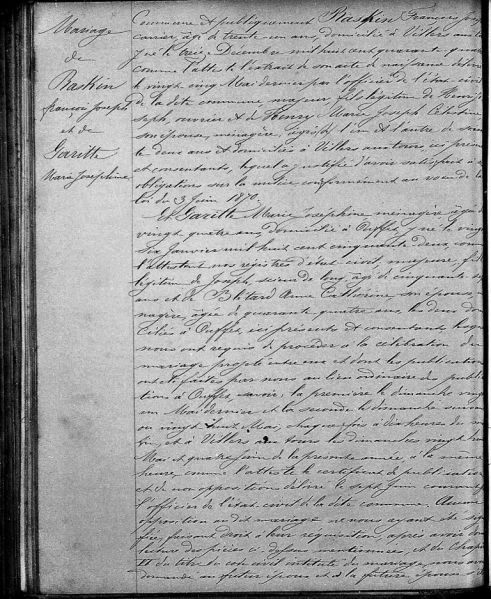 Mariage
de
Raskin
François Joseph
et de
Garitte
Marie Joséphine.
Commune et publiquement Raskin François
carrier, âgé de trente un ans domicilié à Villers aux tours
y né le treize Décembre mil huit cent quarante
comme l'atteste l'extrait de son acte de naissance délivré
le vingt cinq Mai dernier par l'officier de l'état civil
de la dite commune, majeur, fils légitime de Henri
ouvrier et de Henry Marie Joseph Célestine
son épouse, ménagère, âgés l'un et l'autre de
deux ans et domiciliés à Villers aux tours ici présents
et consentants, lequel a justifié d'avoir satisfait
obligations sur la milice conformément au vœu de la
loi du 3 Juin 1870.
Et Garitte Marie Joséphine ménagère âgée de
vingt quatre ans domiciliée à Ouffet, y née le vingt
six Janvier mil huit cent cinquante deux, comme
l'attestent nos registres d'état civil, majeure, fille
légitime de Joseph, scieur de long, âgé de cinquante
ans et de Blétard Anne Catherine, son épouse
nagère, âgée de quarante quatre ans, les deux domi
ciliés à Ouffet, ici présents et consentants, lesquels
nous ont requis de procéder à la célébration du
mariage projeté entre eux et dont les publications
ont été faites par nous au lieu ordinaire des publica
tions à Ouffet, savoir: la première le dimanche vingt
un Mai dernier et la seconde le dimanche suivant
ou vingt huit Mai, chaque fois à dix heures du ma
tin et à Villers aux tours les dimanches vingt huit
Mai et quatre Juin de la présente année à la même
heure, comme l'atteste le certificat de publication
et de non opposition délivré le sept Juin courant
l'officier de l'état civil de la dite commune. Aucune
opposition au dit mariage ne nous ayant été signi
fiée, faisant droit à leur réquisition, après avoir donné
lecture des pièces ci-dessus mentionnées, et du Chapitre
VI du titre du code civil intitulé du mariage, nous avons
demandé au futur époux et à la future épouse